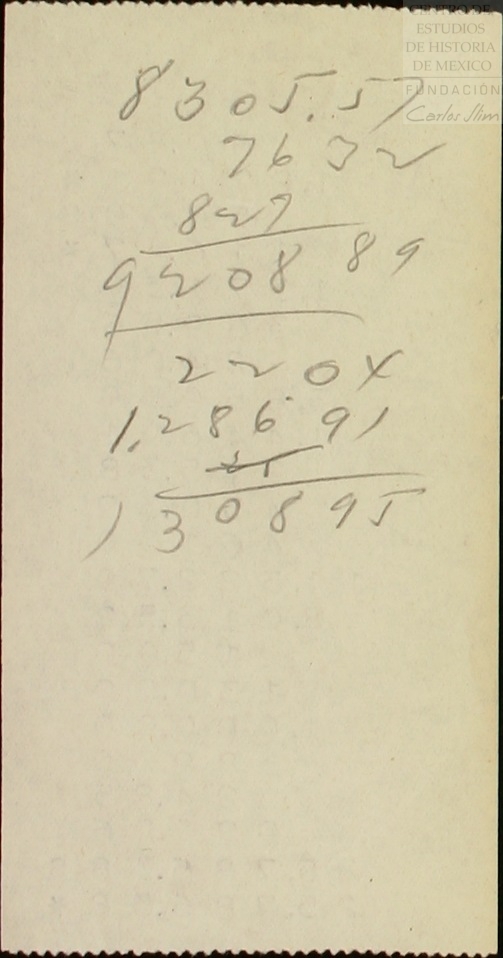 CENTRO DE
ESTUDIOS
DE HISTORIA
DE MEXICO
FUNDACIÓN
Carlos Slim
8305.57
7632
827
9208 89
2204
1.286 91
25
130895